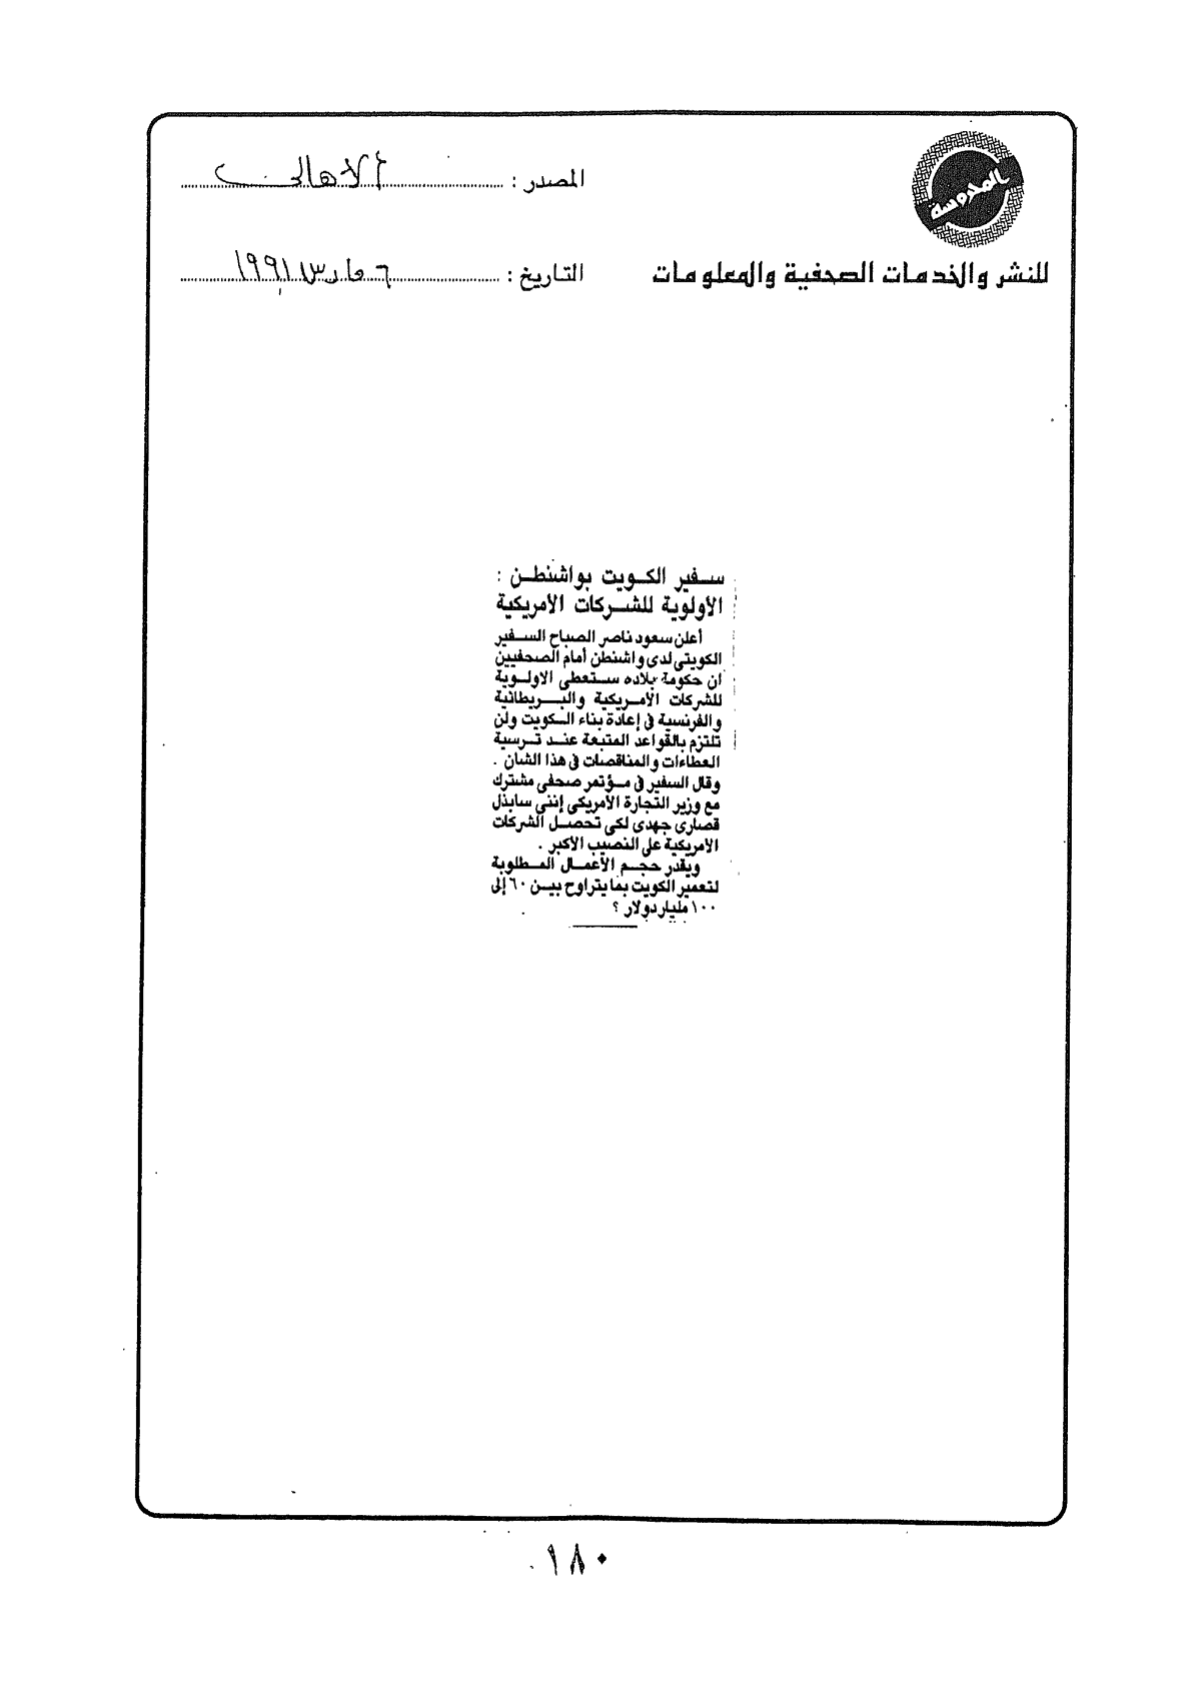 المحروسة
للنشر والخدمات الصحفية والمعلومات
المصدر : الأهالى
التاريخ : ٦ مارس ١٩٩١
سفير الكويت بواشنطن :
الأولوية للشركات الأمريكية
أعلن سعود ناصر الصباح السفير
الكويتى لدى واشنطن أمام الصحفيين
ان حكومة بلاده ستعطى الاولوية
للشركات الأمريكية والبريطانية
والفرنسية فى إعادة بناء الكويت ولن
تلتزم بالقواعد المتبعة عند ترسية
العطاءات والمناقصات فى هذا الشان .
وقال السفير فى مؤتمر صحفى مشترك
مع وزير التجارة الأمريكى إننى سابذل
قصارى جهدى لكى تحصل الشركات
الامريكية على النصيب الأكبر .
ويقدر حجم الأعمال المطلوبة
لتعمير الكويت بما يتراوح بين ٦٠ إلى
١٠٠ مليار دولار ؟
١٨٠